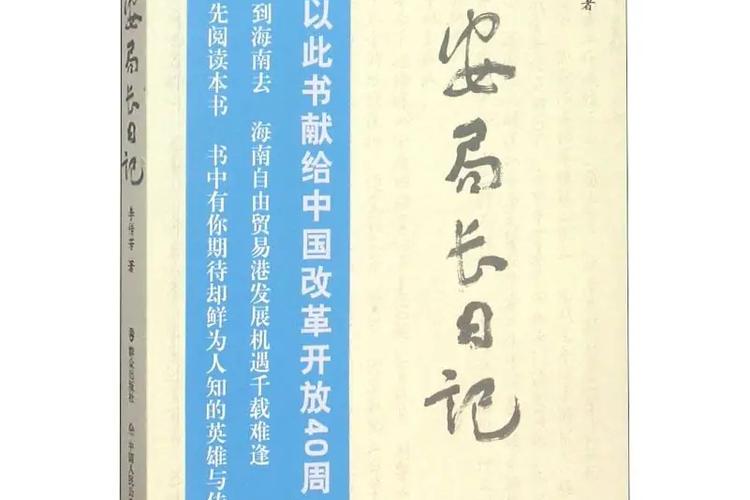 安局长日记
李惜荣 著
群众出版社
中国人民公
以此书献给中国改革开放40周
到海南去 海南自由贸易港发展机遇千载难逢
先阅读本书 书中有你期待却鲜为人知的英雄与传
安局长日记
著